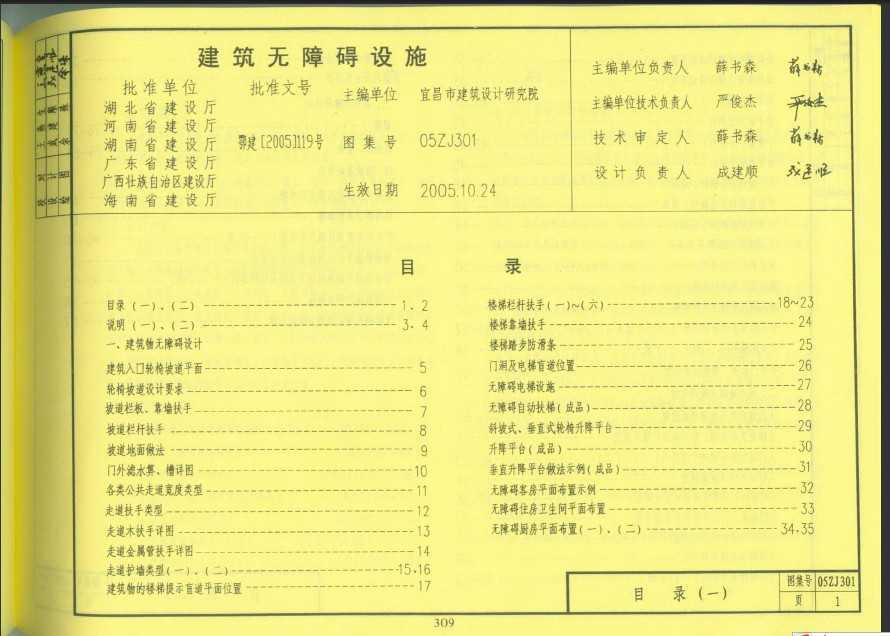 建筑无障碍设施
批准单位
湖北省建设厅
河南省建设厅
湖南省建设厅
广东省建设厅
广西壮族自治区建设厅
海南省建设厅
批准文号
鄂建[2005]119号
主编单位 宜昌市建筑设计研究院
图集号 05ZJ301
生效日期 2005.10.24
主编单位负责人 薛书森
主编单位技术负责人 严俊杰
技术审定人 薛书森
设计负责人 成建顺
目 录
目录(一)、(二) 1、2
说明(一)、(二) 3、4
一、建筑物无障碍设计
建筑入口轮椅坡道平面 5
轮椅坡道设计要求 6
坡道栏板、靠墙扶手 7
坡道栏杆扶手 8
坡道地面做法 9
门外滤水箅、槽详图 10
各类公共走道宽度类型 11
走道扶手类型 12
走道木扶手详图 13
走道金属管扶手详图 14
走道护墙类型(一)、(二) 15、16
建筑物的楼梯提示盲道平面位置 17
楼梯栏杆扶手(一)~(六) 18~23
楼梯靠墙扶手 24
楼梯踏步防滑条 25
门洞及电梯盲道位置 26
无障碍电梯设施 27
无障碍自动扶梯(成品) 28
斜坡式、垂直式轮椅升降平台 29
升降平台(成品) 30
垂直升降平台做法示例(成品) 31
无障碍客房平面布置示例 32
无障碍住房卫生间平面布置 33
无障碍厨房平面布置(一)、(二) 34、35
目 录 (一)
图集号 05ZJ301
页 1
309